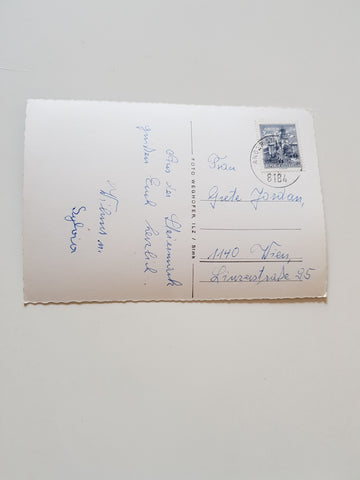 Aus der Steiermark
grüßen Euch herzlich
Sylvia
FOTO WEGHOFER, ILZ / Stmk
8184
Frau
Grete Jordan,
1140 Wien,
Linzerstraße 25